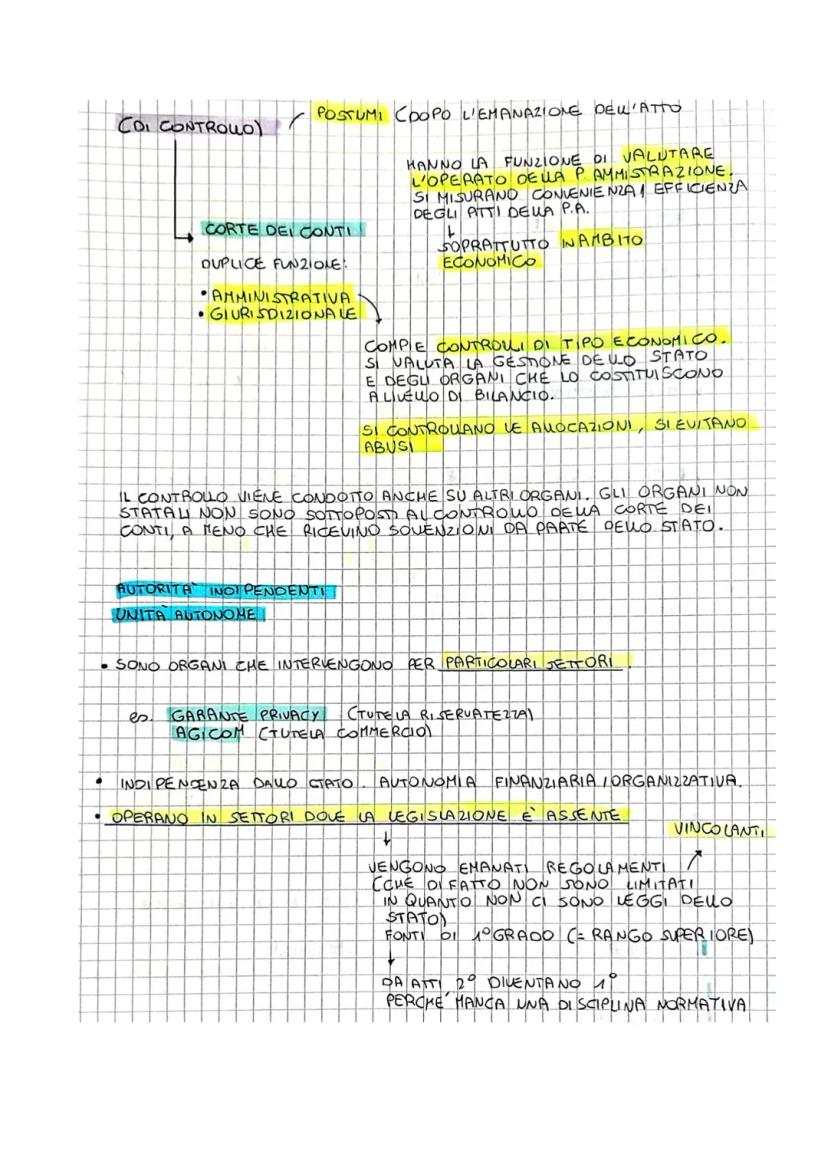 (DI CONTROLLO)
POSTUMI (DOPO L'EMANAZIONE DELL'ATTO
HANNO LA FUNZIONE DI VALUTARE
L'OPERATO DELLA P. AMMISTRAZIONE.
SI MISURANO CONVENIENZA / EFFICIENZA
DEGLI ATTI DELLA P.A.
SOPRATTUTTO IN AMBITO
ECONOMICO
CORTE DEI CONTI
DUPLICE FUNZIONE:
• AMMINISTRATIVA
• GIURISDIZIONALE
COMPIE CONTROLLI DI TIPO ECONOMICO.
SI VALUTA LA GESTIONE DELLO STATO
E DEGLI ORGANI CHE LO COSTITUISCONO
A LIVELLO DI BILANCIO.
SI CONTROLLANO LE ALLOCAZIONI, SI EVITANO
ABUSI
IL CONTROLLO VIENE CONDOTTO ANCHE SU ALTRI ORGANI. GLI ORGANI NON
STATALI NON SONO SOTTOPOSTI AL CONTROLLO DELLA CORTE DEI
CONTI, A MENO CHE RICEVINO SOVENZIONI DA PARTE DELLO STATO.
AUTORITA' INDIPENDENTI
UNITÀ AUTONOME
• SONO ORGANI CHE INTERVENGONO PER PARTICOLARI SETTORI.
es. GARANTE PRIVACY (TUTELA RISERVATEZZA)
AGICOM (TUTELA COMMERCIO)
• INDIPENDENZA DALLO STATO. AUTONOMIA FINANZIARIA / ORGANIZZATIVA.
• OPERANO IN SETTORI DOVE LA LEGISLAZIONE È ASSENTE
VINCOLANTI
VENGONO EMANATI REGOLAMENTI
(CHE DI FATTO NON SONO LIMITATI
IN QUANTO NON CI SONO LEGGI DELLO
STATO)
FONTI DI 1° GRADO (= RANGO SUPERIORE)
DA ATTI 2° DIVENTANO 1°
PERCHÉ MANCA UNA DISCIPLINA NORMATIVA